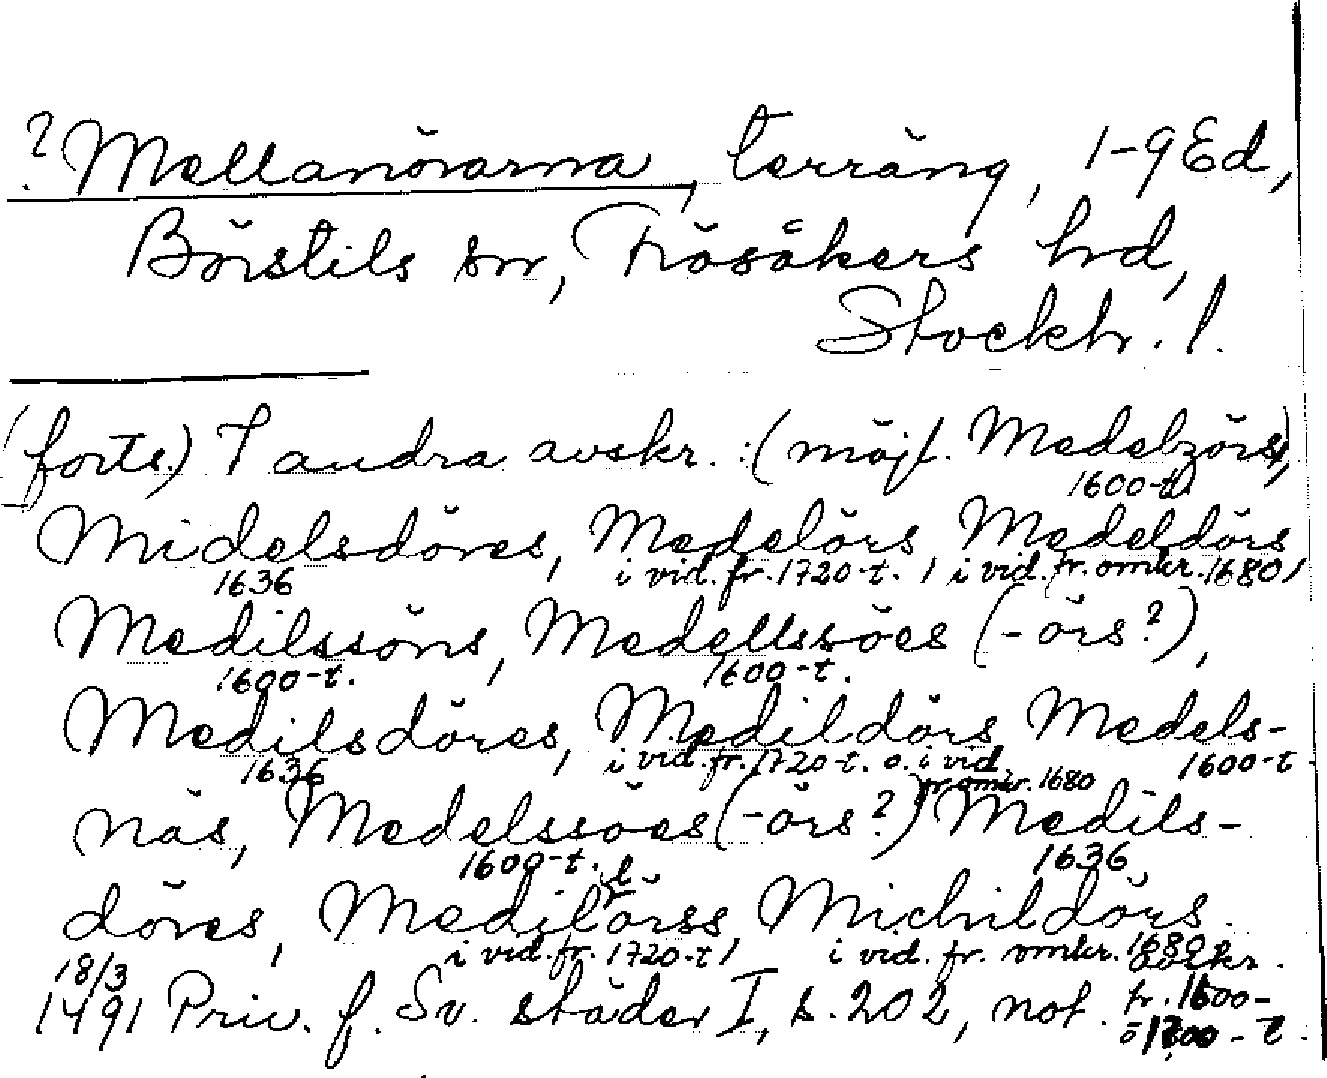 ? Mellanörarna, terräng, 1-9 Ed,
Börstils sn, Frösåkers hd,
Stockh. l.
(forts.) I andra avskr.: (möjl. Medelzörs),
1600-t.
Midelsdöres, Medelörs, Medeldörs
1636 i vid. fr. 1720-t., i vid. fr. omkr. 1680,
Medilssöns, Medellssöes (-örs?),
1600-t. 1600-t.
Medilsdöres, Medildörs Medels-
1636 i vid. fr. 1720-t. o. i vid. 1600-t.
fr. omkr. 1680
näs, Medelssöes (-örs?) Medils-
1600-t. 1636
döres, Medilörss, Michildörs.
i vid. fr. 1720-t, i vid. fr. omkr. 1680
18/3 avskr.
1491 Priv. f. Sv. städer I, s. 202, not. fr. 1600-
o 1700-t.